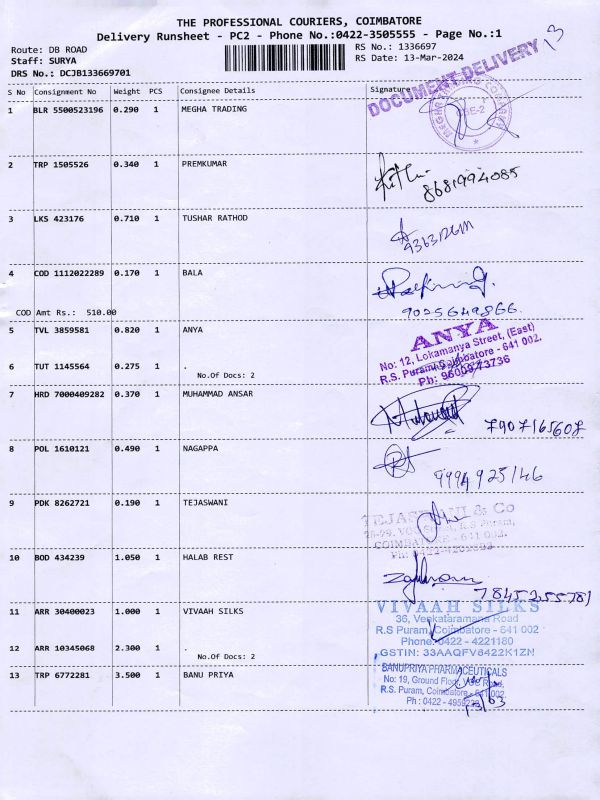 THE PROFESSIONAL COURIERS, COIMBATORE
Delivery Runsheet - PC2 - Phone No.:0422-3505555 - Page No.:1
Route: DB ROAD
RS No.: 1336697
Staff: SURYA
RS Date: 13-Mar-2024
DRS No.: DCJB133669701
DOCUMENT DELIVERY
S No Consignment No Weight PCS Consignee Details Signature
1 BLR 5500523196 0.290 1 MEGHA TRADING
2 TRP 1505526 0.340 1 PREMKUMAR
8681994085
3 LKS 423176 0.710 1 TUSHAR RATHOD
4 COD 1112022289 0.170 1 BALA
9025649866
COD Amt Rs.: 510.00
5 TVL 3859581 0.820 1 ANYA
ANYA
No: 12, Lokamanya Street, (East)
R.S. Puram, Coimbatore - 641 002.
6 TUT 1145564 0.275 1 .
No.Of Docs: 2
7 HRD 7000409282 0.370 1 MUHAMMAD ANSAR
7907165607
8 POL 1610121 0.490 1 NAGAPPA
9994925146
9 PDK 8262721 0.190 1 TEJASWANI
TEJASWANI & Co
10 BOD 434239 1.050 1 HALAB REST
7845255781
11 ARR 30400023 1.000 1 VIVAAH SILKS
VIVAAH SILKS
36, Venkataramana Road
R.S Puram, Coimbatore - 641 002
Phone: 0422 - 4221180
GSTIN: 33AAQFV8422K1ZN
12 ARR 10345068 2.300 1 .
No.Of Docs: 2
13 TRP 6772281 3.500 1 BANU PRIYA
BANUPRIYA PHARMACEUTICALS
No: 19, Ground Floor, VCC Road,
R.S. Puram, Coimbatore - 641 002